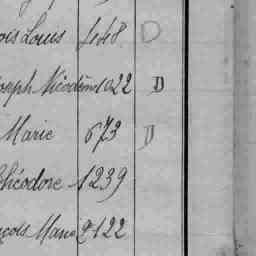 ois Louis 448 D
oseph Nicodème 1022 D
Marie 673 D
Théodore 1239
nçois Marie 2122